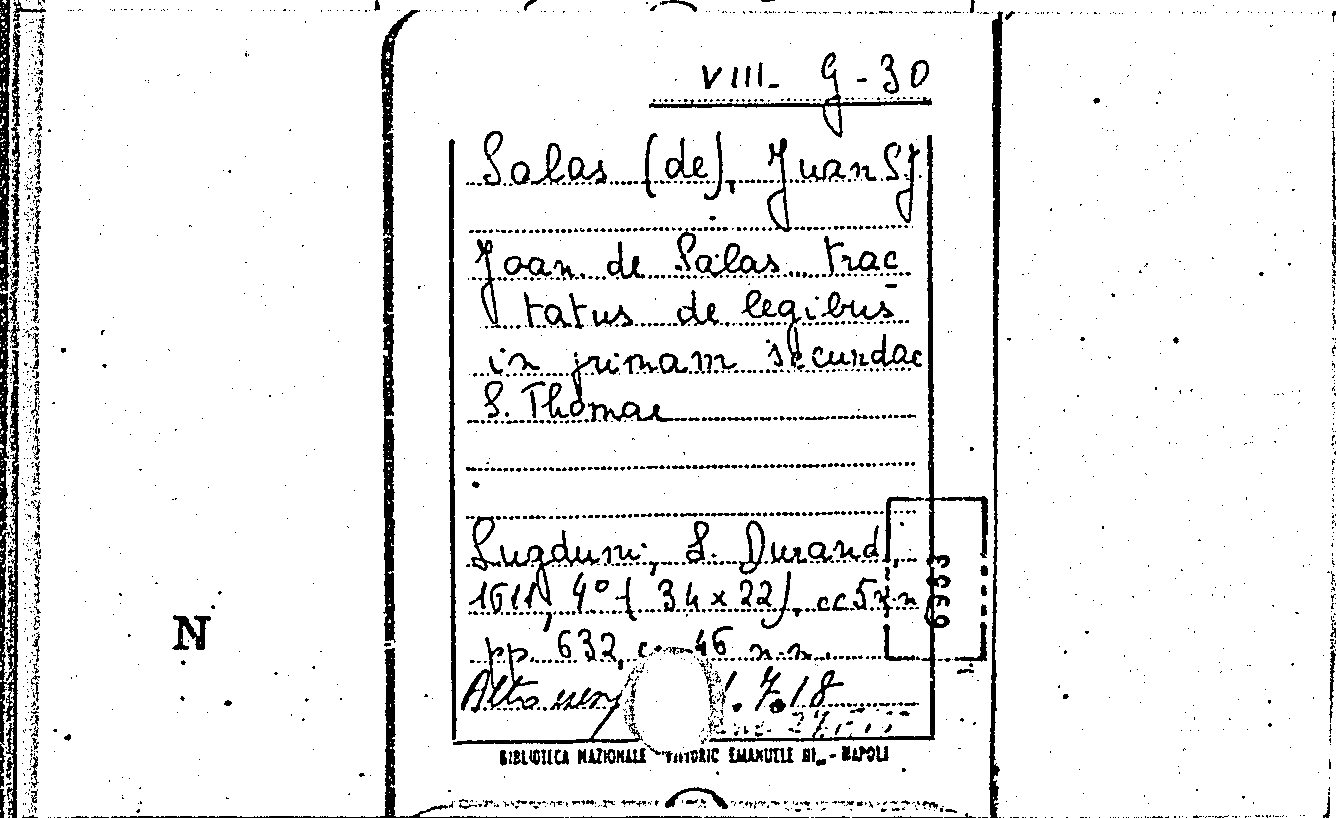 VIII. G-30
Salas (de), Juan SJ
Joan. de Salas trac
tatus de legibus
in primam secundae
S. Thomae
Lugduni, L. Durand,
1611, 4° ( 34 x 22 ), cc 5 n n
pp. 632, 46 n.n.
Altro
6933
N
BIBLIOTECA NAZIONALE VITTORIO EMANUELE III - NAPOLI